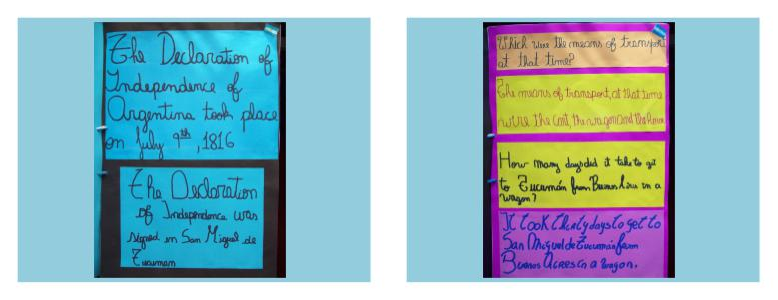 The Declaration of
Independence of
Argentina took place
on July 9th, 1816
The Declaration
of Independence was
signed in San Miguel de
Tucuman
Which were the means of transport
at that time?
The means of transport, at that time
were the cart, the wagon and the horse
How many days did it take to get
to Tucumán from Buenos Aires in a
wagon?
It took thirty days to get to
San Miguel de Tucumán from
Buenos Aires in a wagon.